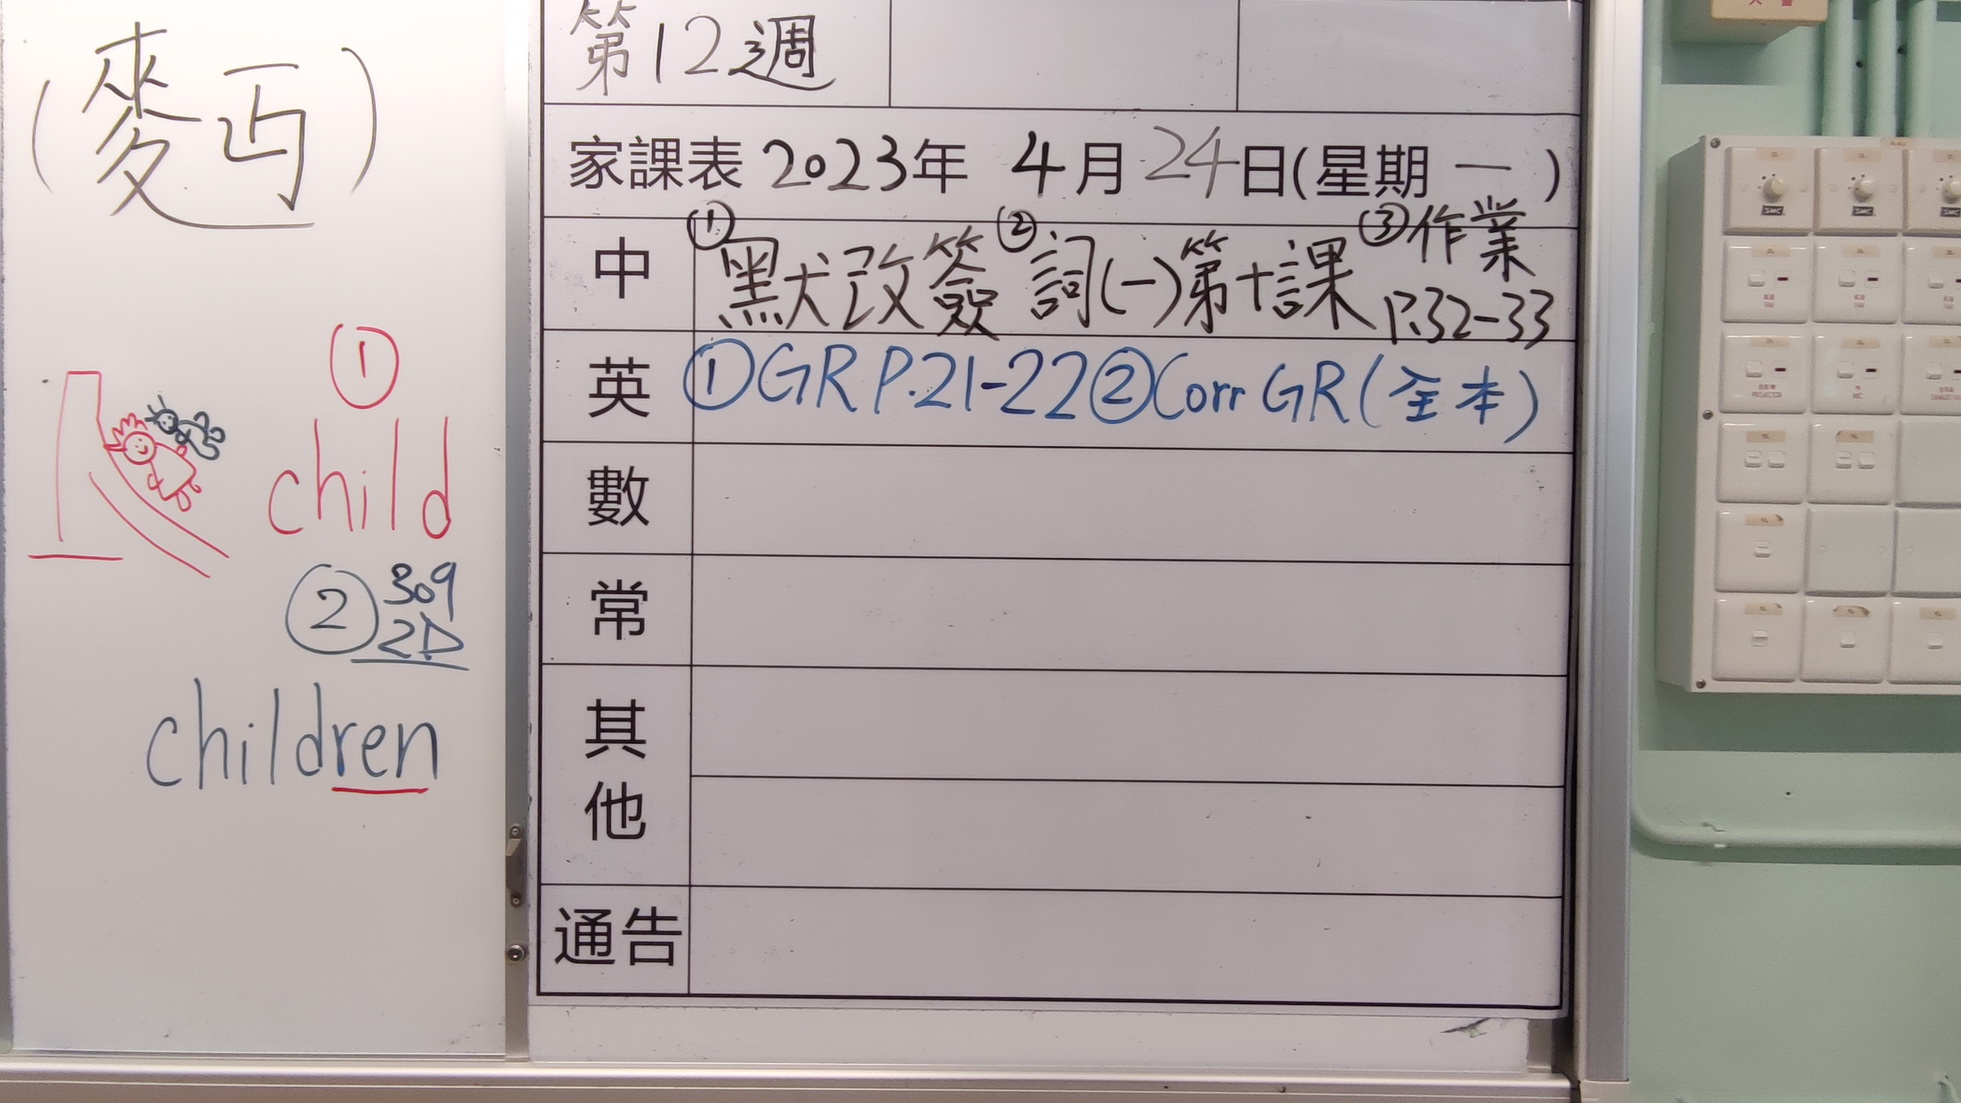 (麥丏)
①
child
② 309
2D
children
第12週
家課表 2023年 4月 24日(星期 一 )
中 ①默改簽 ②詞(一)第十課 ③作業 P.32-33
英 ①GR P.21-22 ②Corr GR (全本)
數
常
其他
通告